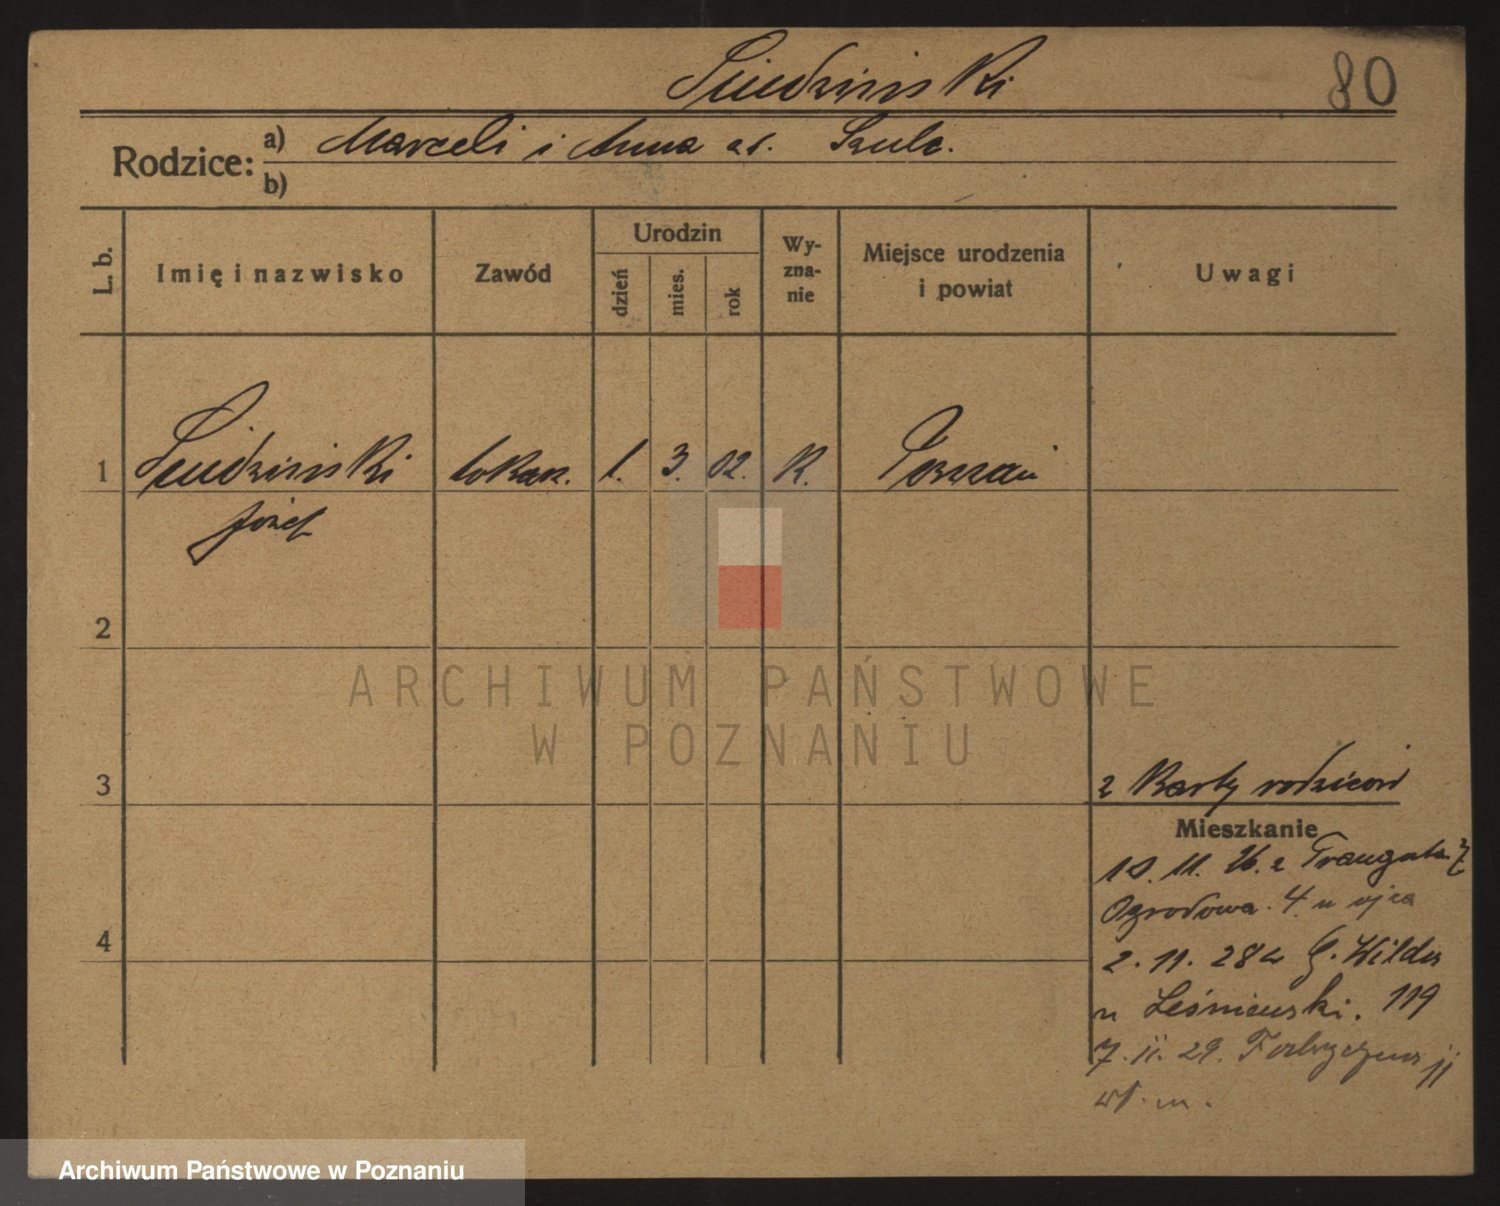 80
Rodzice: a) Marceli i Anna Szulc.
b)
L. b.
Imię i nazwisko
Zawód
Urodzin
dzień
mies.
rok
Wy-
zna-
nie
Miejsce urodzenia
i powiat
Uwagi
1 tokarz. 1. 3. 02. K. Poznań
Józef
2
ARCHIWUM PAŃSTWOWE
W POZNANIU
3 z Karty rodziców
Mieszkanie
11. 26. z Traugutta 7
Ogrodowa 4. u ojca
4
2. 11. 28 G. Wilda
u Leśniewski. 119
7. 11. 29. 11
Archiwum Państwowe w Poznaniu